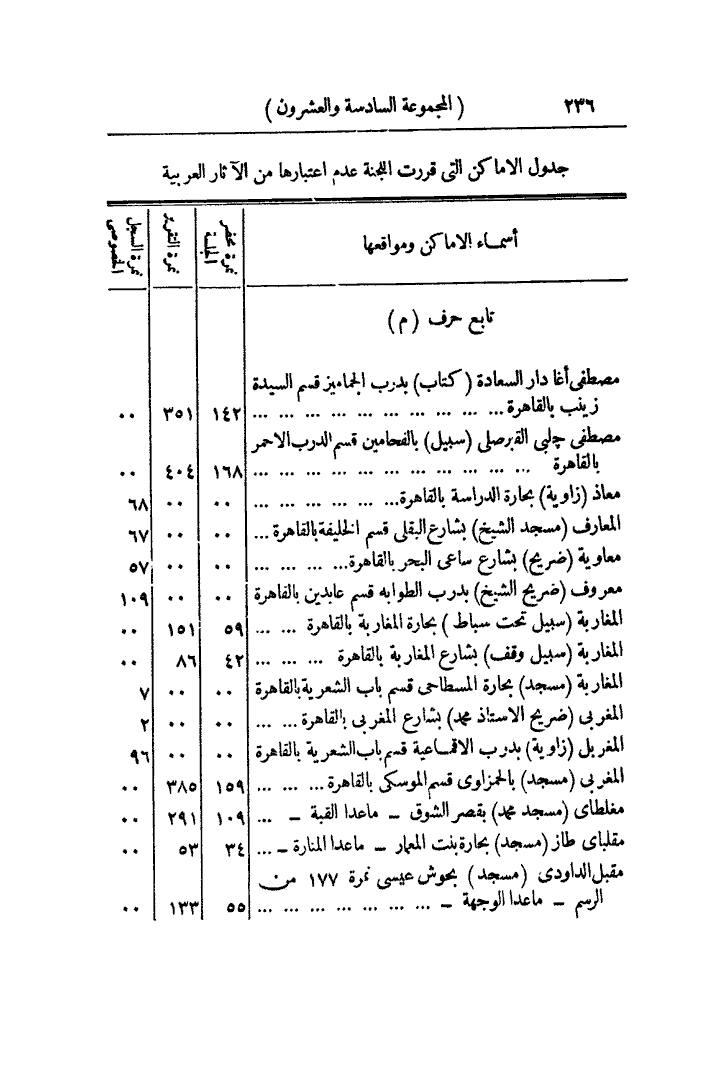 ٢٣٦ ( المجموعة السادسة والعشرون )
جدول الاماكن التى قررت اللجنة عدم اعتبارها من الآثار العربية
أسماء الاماكن ومواقعها | نمرة محضر الجلسة | نمرة التقرير | نمرة السجل الخصوصى
تابع حرف ( م )
مصطفى أغا دار السعادة ( كتاب ) بدرب الجماميز قسم السيدة
زينب بالقاهرة ... ... ... ... ... ... ... ... ... ... ١٤٢ ٣٥١ ٠٠
مصطفى چلبى القبرصلى (سبيل) بالفحامين قسم الدرب الاحمر
بالقاهرة ... ... ... ... ... ... ... ... ... ... ١٦٨ ٤٠٤ ٠٠
معاذ (زاوية) بحارة الدراسة بالقاهرة... ... ... ... ... ... ٠٠ ٠٠ ٦٨
المعارف (مسجد الشيخ) بشارع البقلى قسم الخليفة بالقاهرة ... ٠٠ ٠٠ ٦٧
معاوية (ضريح) بشارع ساعى البحر بالقاهرة... ... ... ... ٠٠ ٠٠ ٥٧
معروف (ضريح الشيخ) بدرب الطوابه قسم عابدين بالقاهرة ٠٠ ٠٠ ١٠٩
المغاربة (سبيل تحت سباط ) بحارة المغاربة بالقاهرة ... ... ٥٩ ١٥١ ٠٠
المغاربة (سبيل وقف) بشارع المغاربة بالقاهرة ... ... ... ٤٢ ٨٦ ٠٠
المغاربة (مسجد) بحارة المسطاحى قسم باب الشعرية بالقاهرة ٠٠ ٠٠ ٧
المغربى (ضريح الاستاذ محمد) بشارع المغربى بالقاهرة ... ... ٠٠ ٠٠ ٢
المغربل (زاوية) بدرب الاقماعية قسم باب الشعرية بالقاهرة ٠٠ ٠٠ ٩٦
المغربى (مسجد) بالحمزاوى قسم الموسكى بالقاهرة ... ... ... ١٥٩ ٣٨٥ ٠٠
مغلطاى (مسجد محمد) بقصر الشوق ــ ماعدا القبة ــ ... ١٠٩ ٢٩١ ٠٠
مقلباى طاز (مسجد) بحارة بنت المعمار ــ ماعدا المنارة ــ ... ٣٤ ٥٣ ٠٠
مقبل الداودى (مسجد ) بحوش عيسى نمرة ١٧٧ من
الرسم ــ ماعدا الوجهة ــ ... ... ... ... ... ... ... ٥٥ ١٣٣ ٠٠